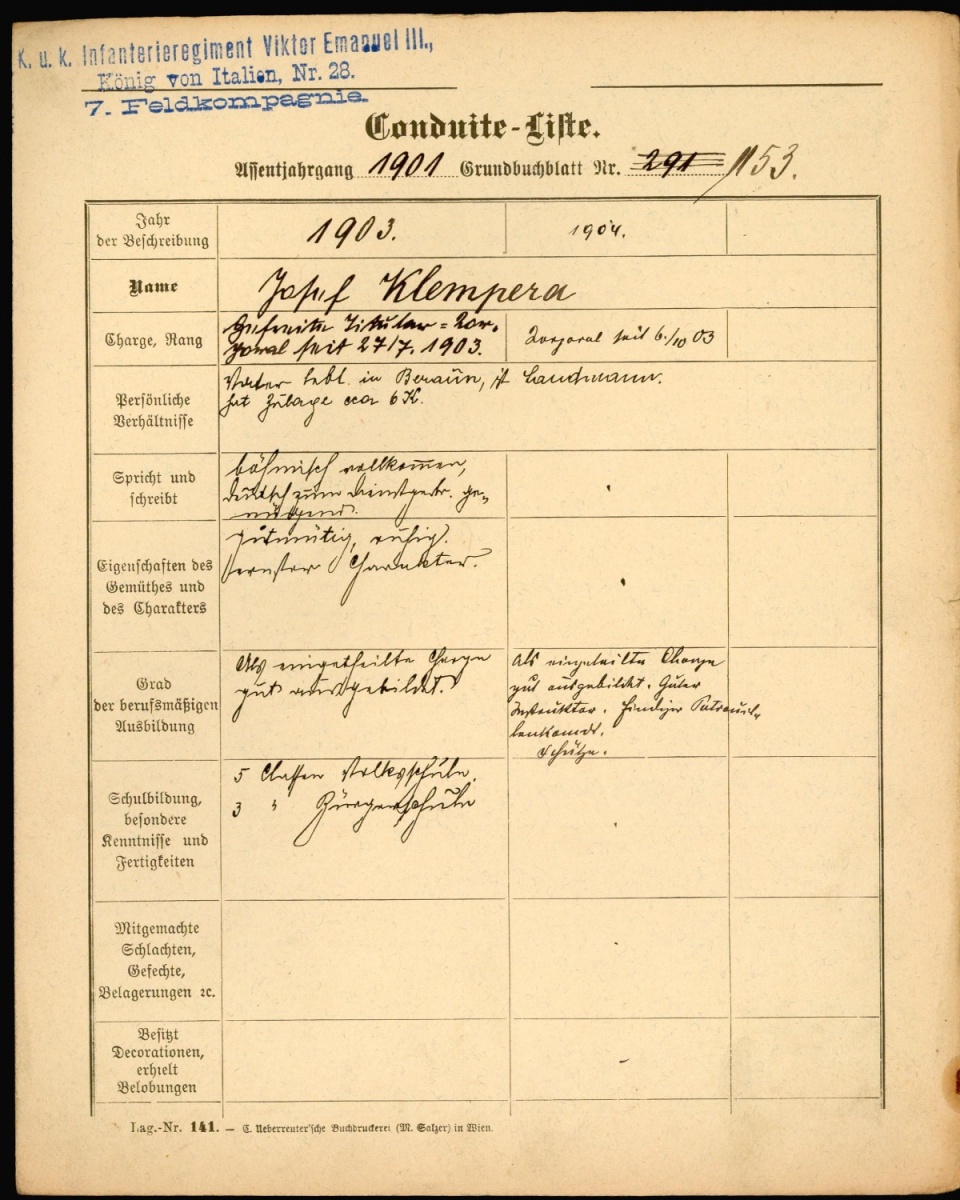 K. u. k. Infanterieregiment Viktor Emanuel III.,
König von Italien, Nr. 28.
7. Feldkompagnie.
Conduite-Liste.
Assentjahrgang 1901 Grundbuchblatt Nr. 291 153.
Jahr
der Beschreibung
1903.
1904.
Name
Josef Klempera
Charge, Rang
Gefreiter Titular-Kor-
poral seit 27/7. 1903.
Korporal seit 6./10 03
Persönliche
Verhältnisse
Vater lebt in Beraun, ist Landmann.
hat Zulage cca 6 K.
Spricht und
schreibt
böhmisch vollkommen,
deutsch zum Dienstgebr. ge-
nügend.
Eigenschaften des
Gemüthes und
des Charakters
gutmütig, ruhig.
ernster Charakter.
Grad
der berufsmäßigen
Ausbildung
Als eingetheilte Charge
gut ausgebildet.
Als eingeteilte Charge
gut ausgebildet. Guter
Instruktor. Findiger Patrouil-
lenkomdt.
Schütze.
Schulbildung,
besondere
Kenntnisse und
Fertigkeiten
5 Classen Volksschule.
3 " Bürgerschule
Mitgemachte
Schlachten,
Gefechte,
Belagerungen ꝛc.
Besitzt
Decorationen,
erhielt
Belobungen
Lag.-Nr. 141. — C. Ueberreuter'sche Buchdruckerei (M. Salzer) in Wien.